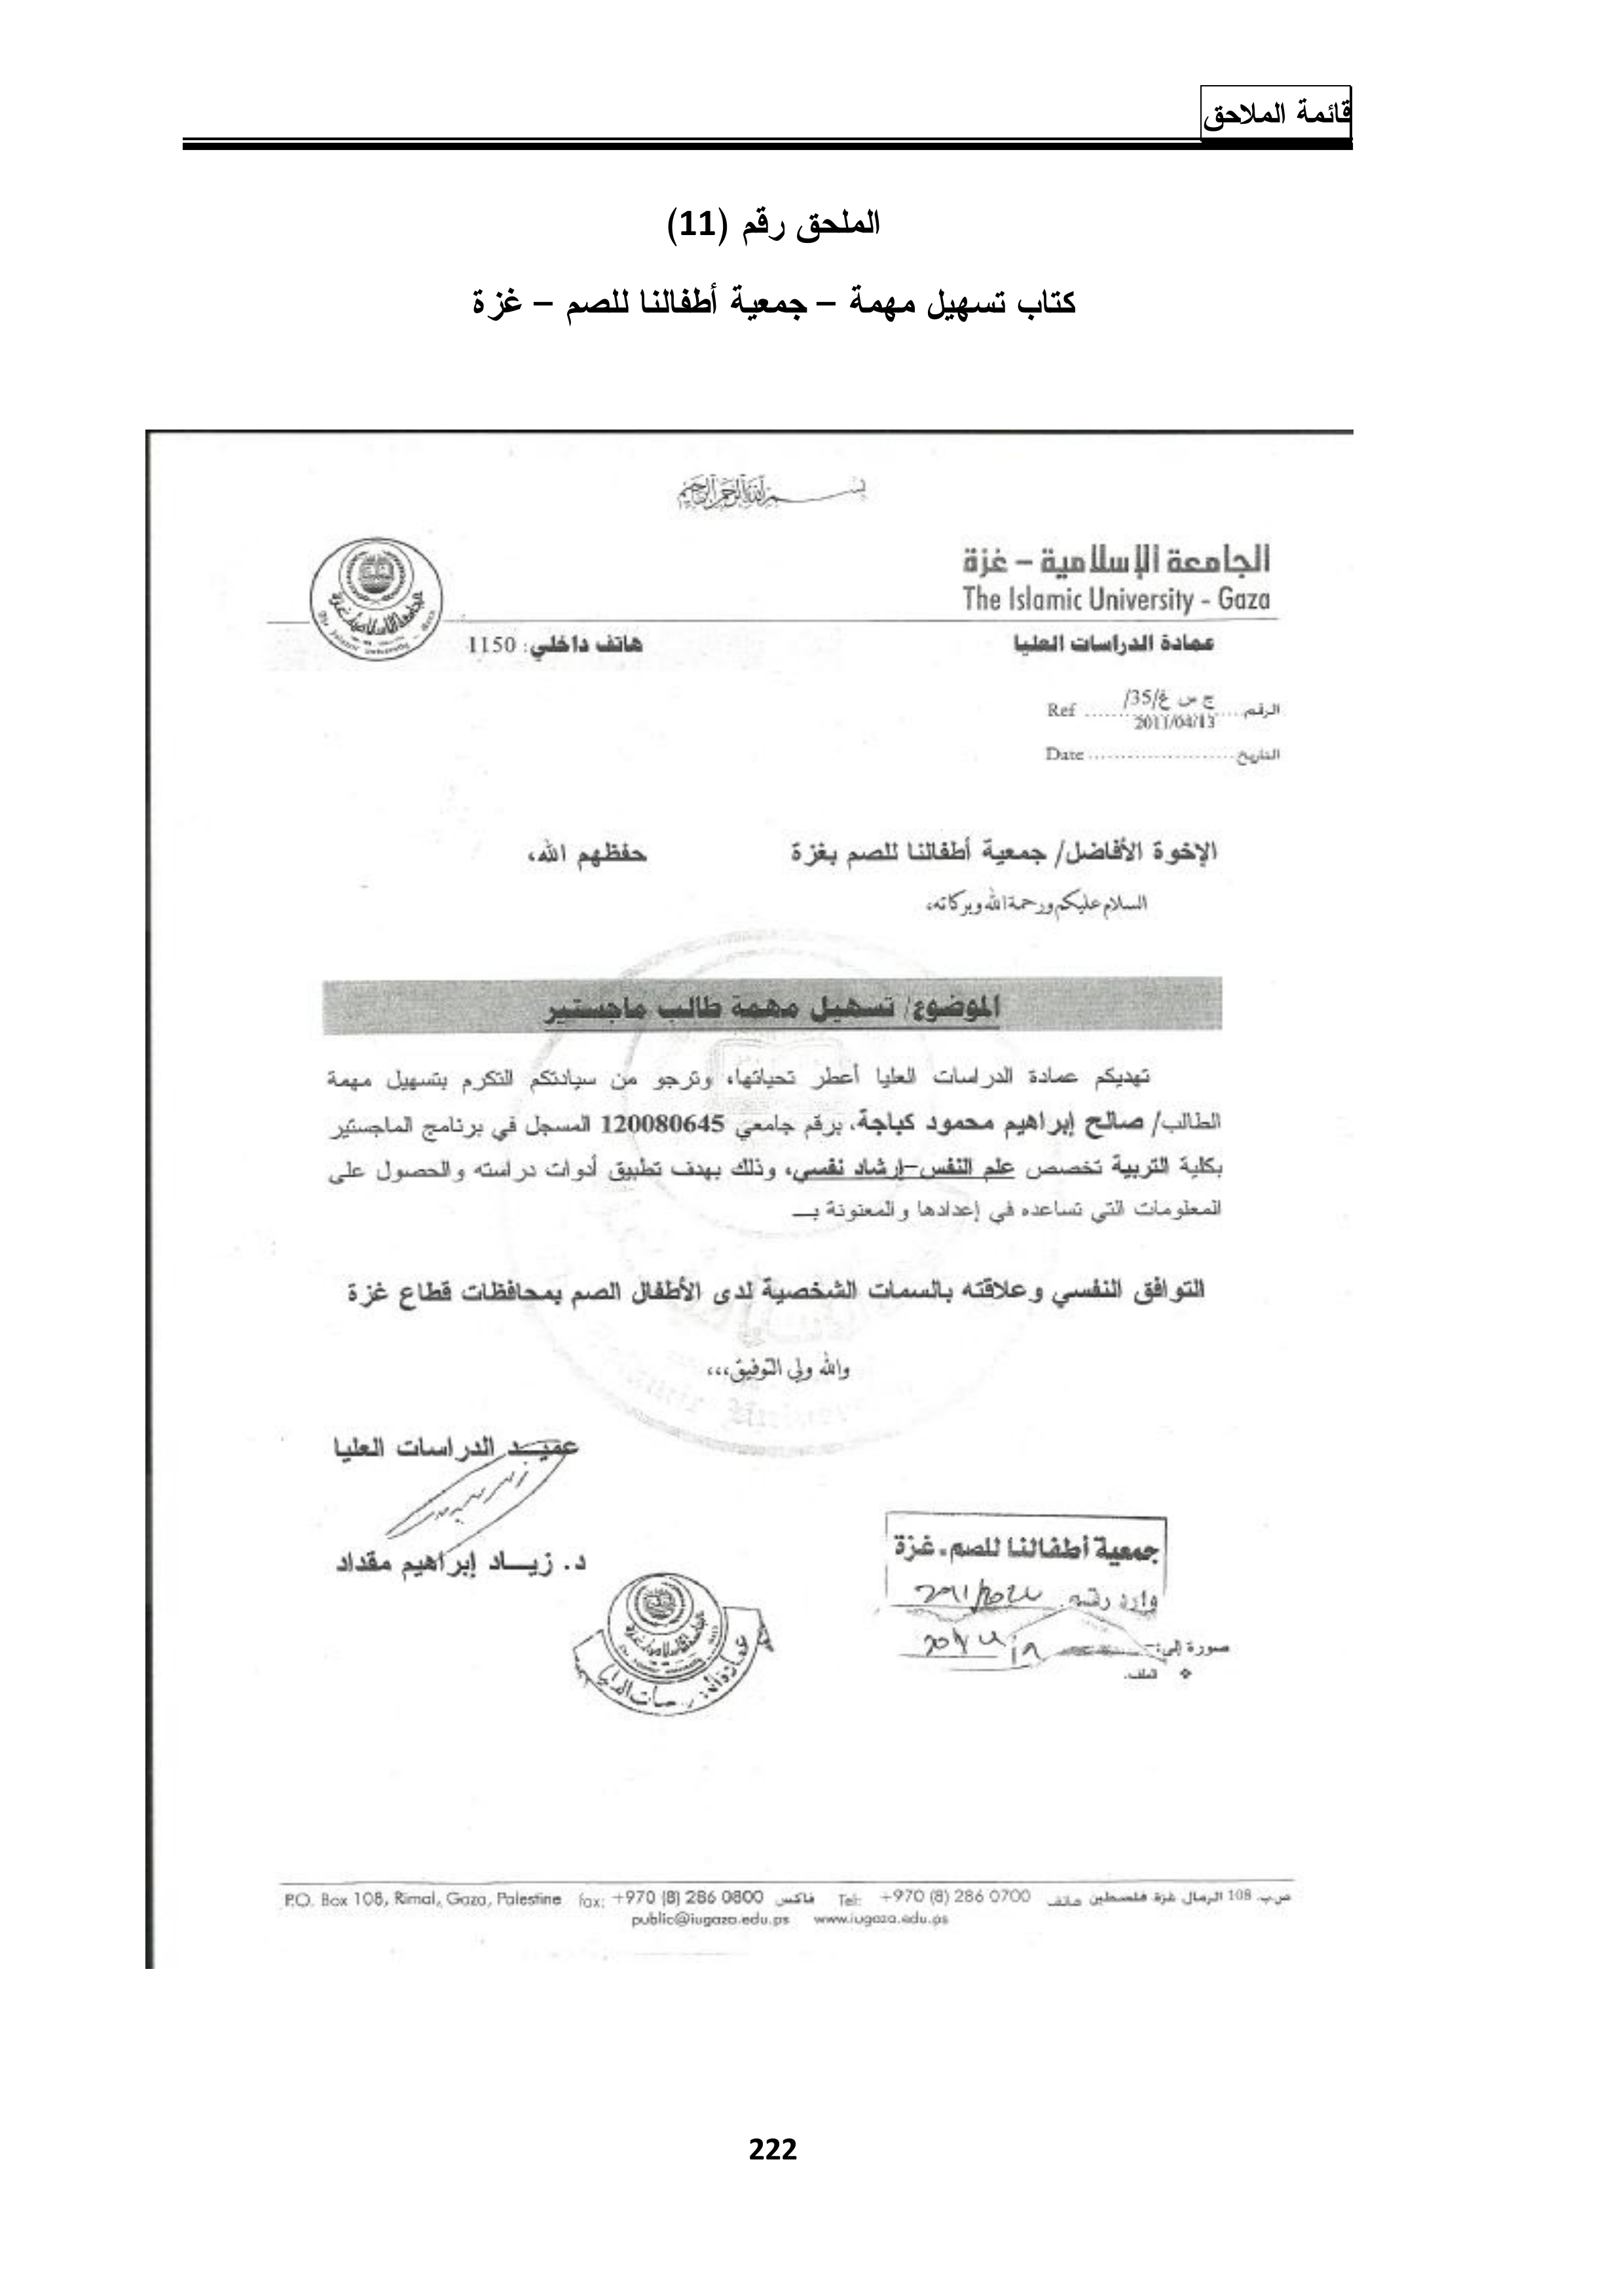 قائمة الملاحق
الملحق رقم (11)
كتاب تسهيل مهمة – جمعية أطفالنا للصم – غزة
بسم الله الرحمن الرحيم
الجامعة الإسلامية – غزة
The Islamic University - Gaza
عمادة الدراسات العليا
هاتف داخلي: 1150
الرقم ج س غ/35/ Ref
2011/04/13
التاريخ Date
الإخوة الأفاضل/ جمعية أطفالنا للصم بغزة حفظهم الله،
السلام عليكم ورحمة الله وبركاته،
الموضوع/ تسهيل مهمة طالب ماجستير
تهديكم عمادة الدراسات العليا أعطر تحياتها، وترجو من سيادتكم التكرم بتسهيل مهمة
الطالب/ صالح إبراهيم محمود كباجة، برقم جامعي 120080645 المسجل في برنامج الماجستير
بكلية التربية تخصص علم النفس-إرشاد نفسي، وذلك بهدف تطبيق أدوات دراسته والحصول على
المعلومات التي تساعده في إعدادها والمعنونة بـــ
التوافق النفسي وعلاقته بالسمات الشخصية لدى الأطفال الصم بمحافظات قطاع غزة
والله ولي التوفيق،،،
عميـــد الدراسات العليا
د. زيـــاد إبراهيم مقداد
جمعية أطفالنا للصم - غزة
وارد رقم
صورة إلى:-
❖ الملف.
ص.ب. 108 الرمال غزة فلسطين هاتف Tel: +970 (8) 286 0700 فاكس fax: +970 (8) 286 0800 P.O. Box 108, Rimal, Gaza, Palestine
public@iugaza.edu.ps www.iugaza.edu.ps
222